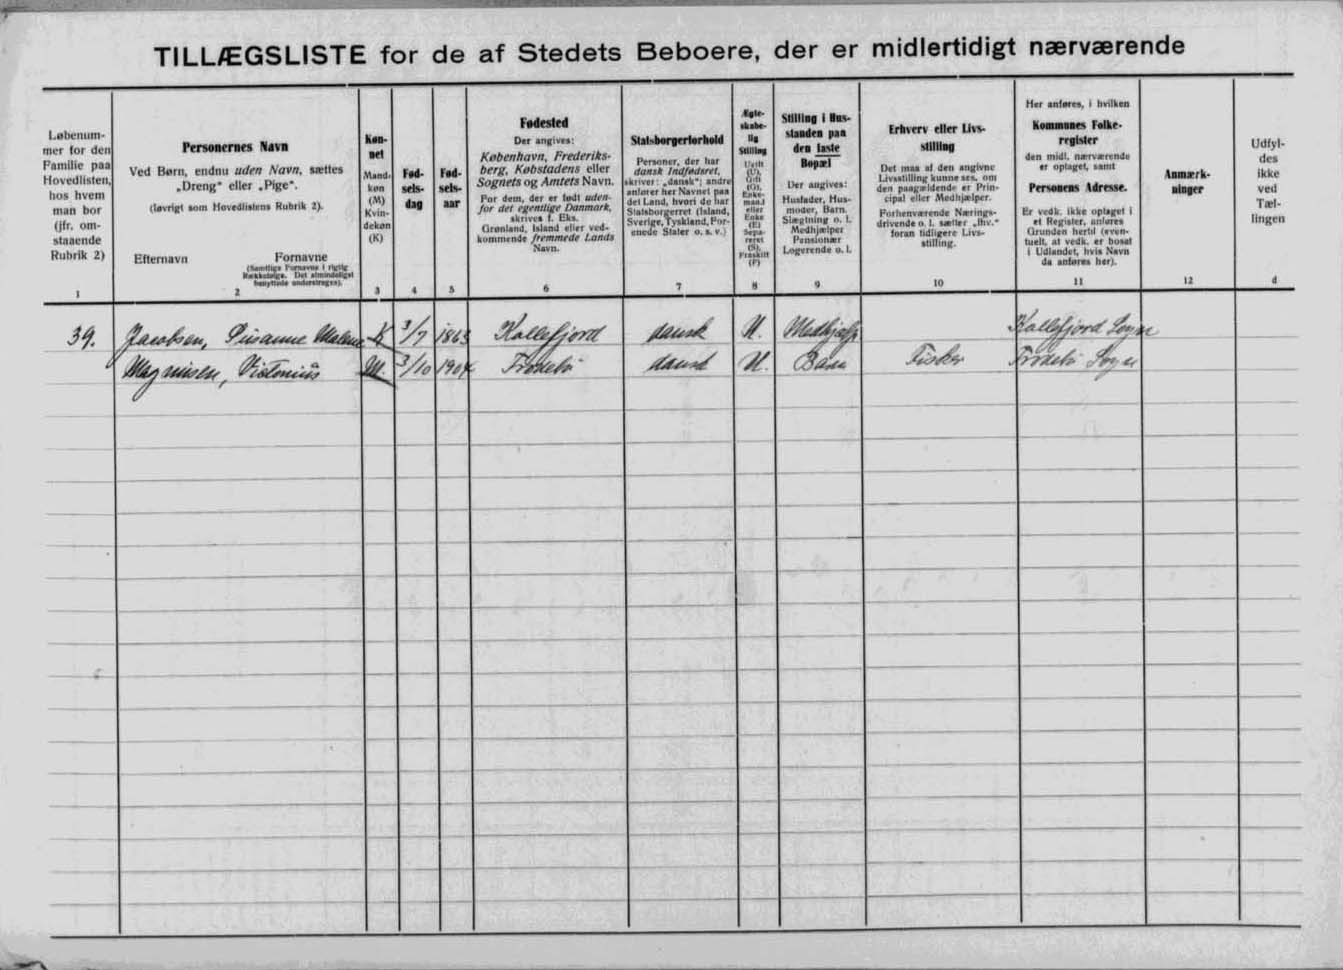 TILLÆGSLISTE for de af Stedets Beboere, der er midlertidigt nærværende
Løbenum-
mer for den
Familie paa
Hovedlisten,
hos hvem
man bor
(jfr. om-
staaende
Rubrik 2)
1
Personernes Navn
Ved Børn, endnu uden Navn, sættes
„Dreng" eller „Pige".
(Iøvrigt som Hovedlistens Rubrik 2).
Efternavn
Fornavne
(Samtlige Fornavne i rigtig
Rækkefølge. Det almindeligst
benyttede understreges).
2
Køn-
net
Mand-
køn
(M)
Kvin-
dekøn
(K)
3
Fød-
sels-
dag
4
Fød-
sels-
aar
5
Fødested
Der angives:
København, Frederiks-
berg, Købstadens eller
Sognets og Amtets Navn.
For dem, der er født uden-
for det egentlige Danmark,
skrives f. Eks.
Grønland, Island eller ved-
kommende fremmede Lands
Navn.
6
Statsborgerforhold
Personer, der har
dansk Indfødsret,
skriver: „dansk"; andre
anfører her Navnet paa
det Land, hvori de har
Statsborgerret (Island,
Sverige, Tyskland, For-
enede Stater o. s. v.)
7
Ægte-
skabe-
lig
Stilling
Ugift
(U),
Gift
(G),
Enke-
mand
eller
Enke
(E)
Sepa-
reret
(S),
Fraskilt
(F)
8
Stilling i Hus-
standen paa
den faste
Bopæl
Der angives:
Husfader, Hus-
moder, Barn.
Slægtning o. l.
Medhjælper
Pensionær
Logerende o. l.
9
Erhverv eller Livs-
stilling
Det maa af den angivne
Livsstilling kunne ses, om
den paagældende er Prin-
cipal eller Medhjælper.
Forhenværende Nærings-
drivende o. l. sætter „fhv."
foran tidligere Livs-
stilling.
10
Her anføres, i hvilken
Kommunes Folke-
register
den midl. nærværende
er optaget, samt
Personens Adresse.
Er vedk. ikke optaget i
et Register, anføres
Grunden hertil (even-
tuelt, at vedk. er bosat
i Udlandet, hvis Navn
da anføres her).
11
Anmærk-
ninger
12
Udfyl-
des
ikke
ved
Tæl-
lingen
d
39. Jacobsen, Susanne Malene K 3/7 1863 Kollefjord dansk U. Medhjælp Kollefjord Sogn
Magnusen, Victorius M. 3/10 1904 Frodebø dansk U. Barn Fisker Frodebø Sogn